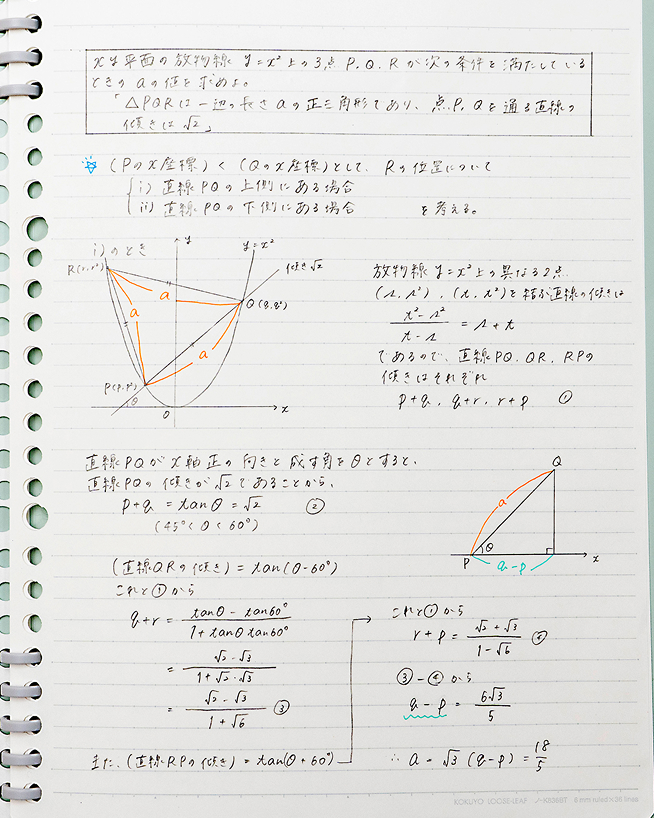 xy平面の放物線 y=x²上の3点 P, Q, R が次の条件を満たしている
ときの aの値を求めよ。
「△PQRは一辺の長さaの正三角形であり、点P, Qを通る直線の
傾きは√2」
(Pのx座標) < (Qのx座標)として、Rの位置について
i) 直線PQの上側にある場合
ii) 直線PQの下側にある場合 を考える。
i)のとき
y
y=x²
傾き√2
R(r,r²)
a
Q(q,q²)
a
a
P(p,p²)
θ
O
x
放物線 y=x²上の異なる2点
(s, s²), (t, t²)を結ぶ直線の傾きは
(t²-s²)/(t-s) = s+t
であるので、直線PQ, QR, RPの
傾きはそれぞれ
p+q, q+r, r+p ①
直線PQがx軸正の向きと成す角をθとすると、
直線PQの傾きが√2であることから、
p+q = tanθ = √2 ②
(45°<θ<60°)
Q
a
θ
P
q-p
x
(直線QRの傾き) = tan(θ-60°)
これと①から
q+r = (tanθ - tan60°)/(1+tanθ tan60°)
= (√2-√3)/(1+√2·√3)
= (√2-√3)/(1+√6) ③
また、(直線RPの傾き) = tan(θ+60°)
これと①から
r+p = (√2+√3)/(1-√6) ④
③-④から
q-p = 6√3/5
∴ a = √3 (q-p) = 18/5
KOKUYO LOOSE-LEAF ノ-S836BT 8mm ruled×36 lines